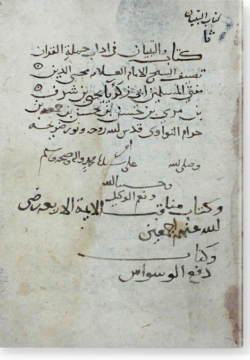 كتاب التبيان
كتاب التبيان في اداب حملة القران
تصنيف الشيخ الامام العلامه محيي الدين
مفتي المسلمين ابي زكريا يحيى بن شرف
بن مري بن حسن بن حسين بن
حزام النواوي قدس الله روحه ونور ضريحه
امين
وصلى الله على محمد واله وصحبه وسلم
وحسبنا الله
ونعم الوكيل
وكتاب مناقب الايمة الاربعه رضي
الله عنهم اجمعين
وكتاب
دفع الوسواس